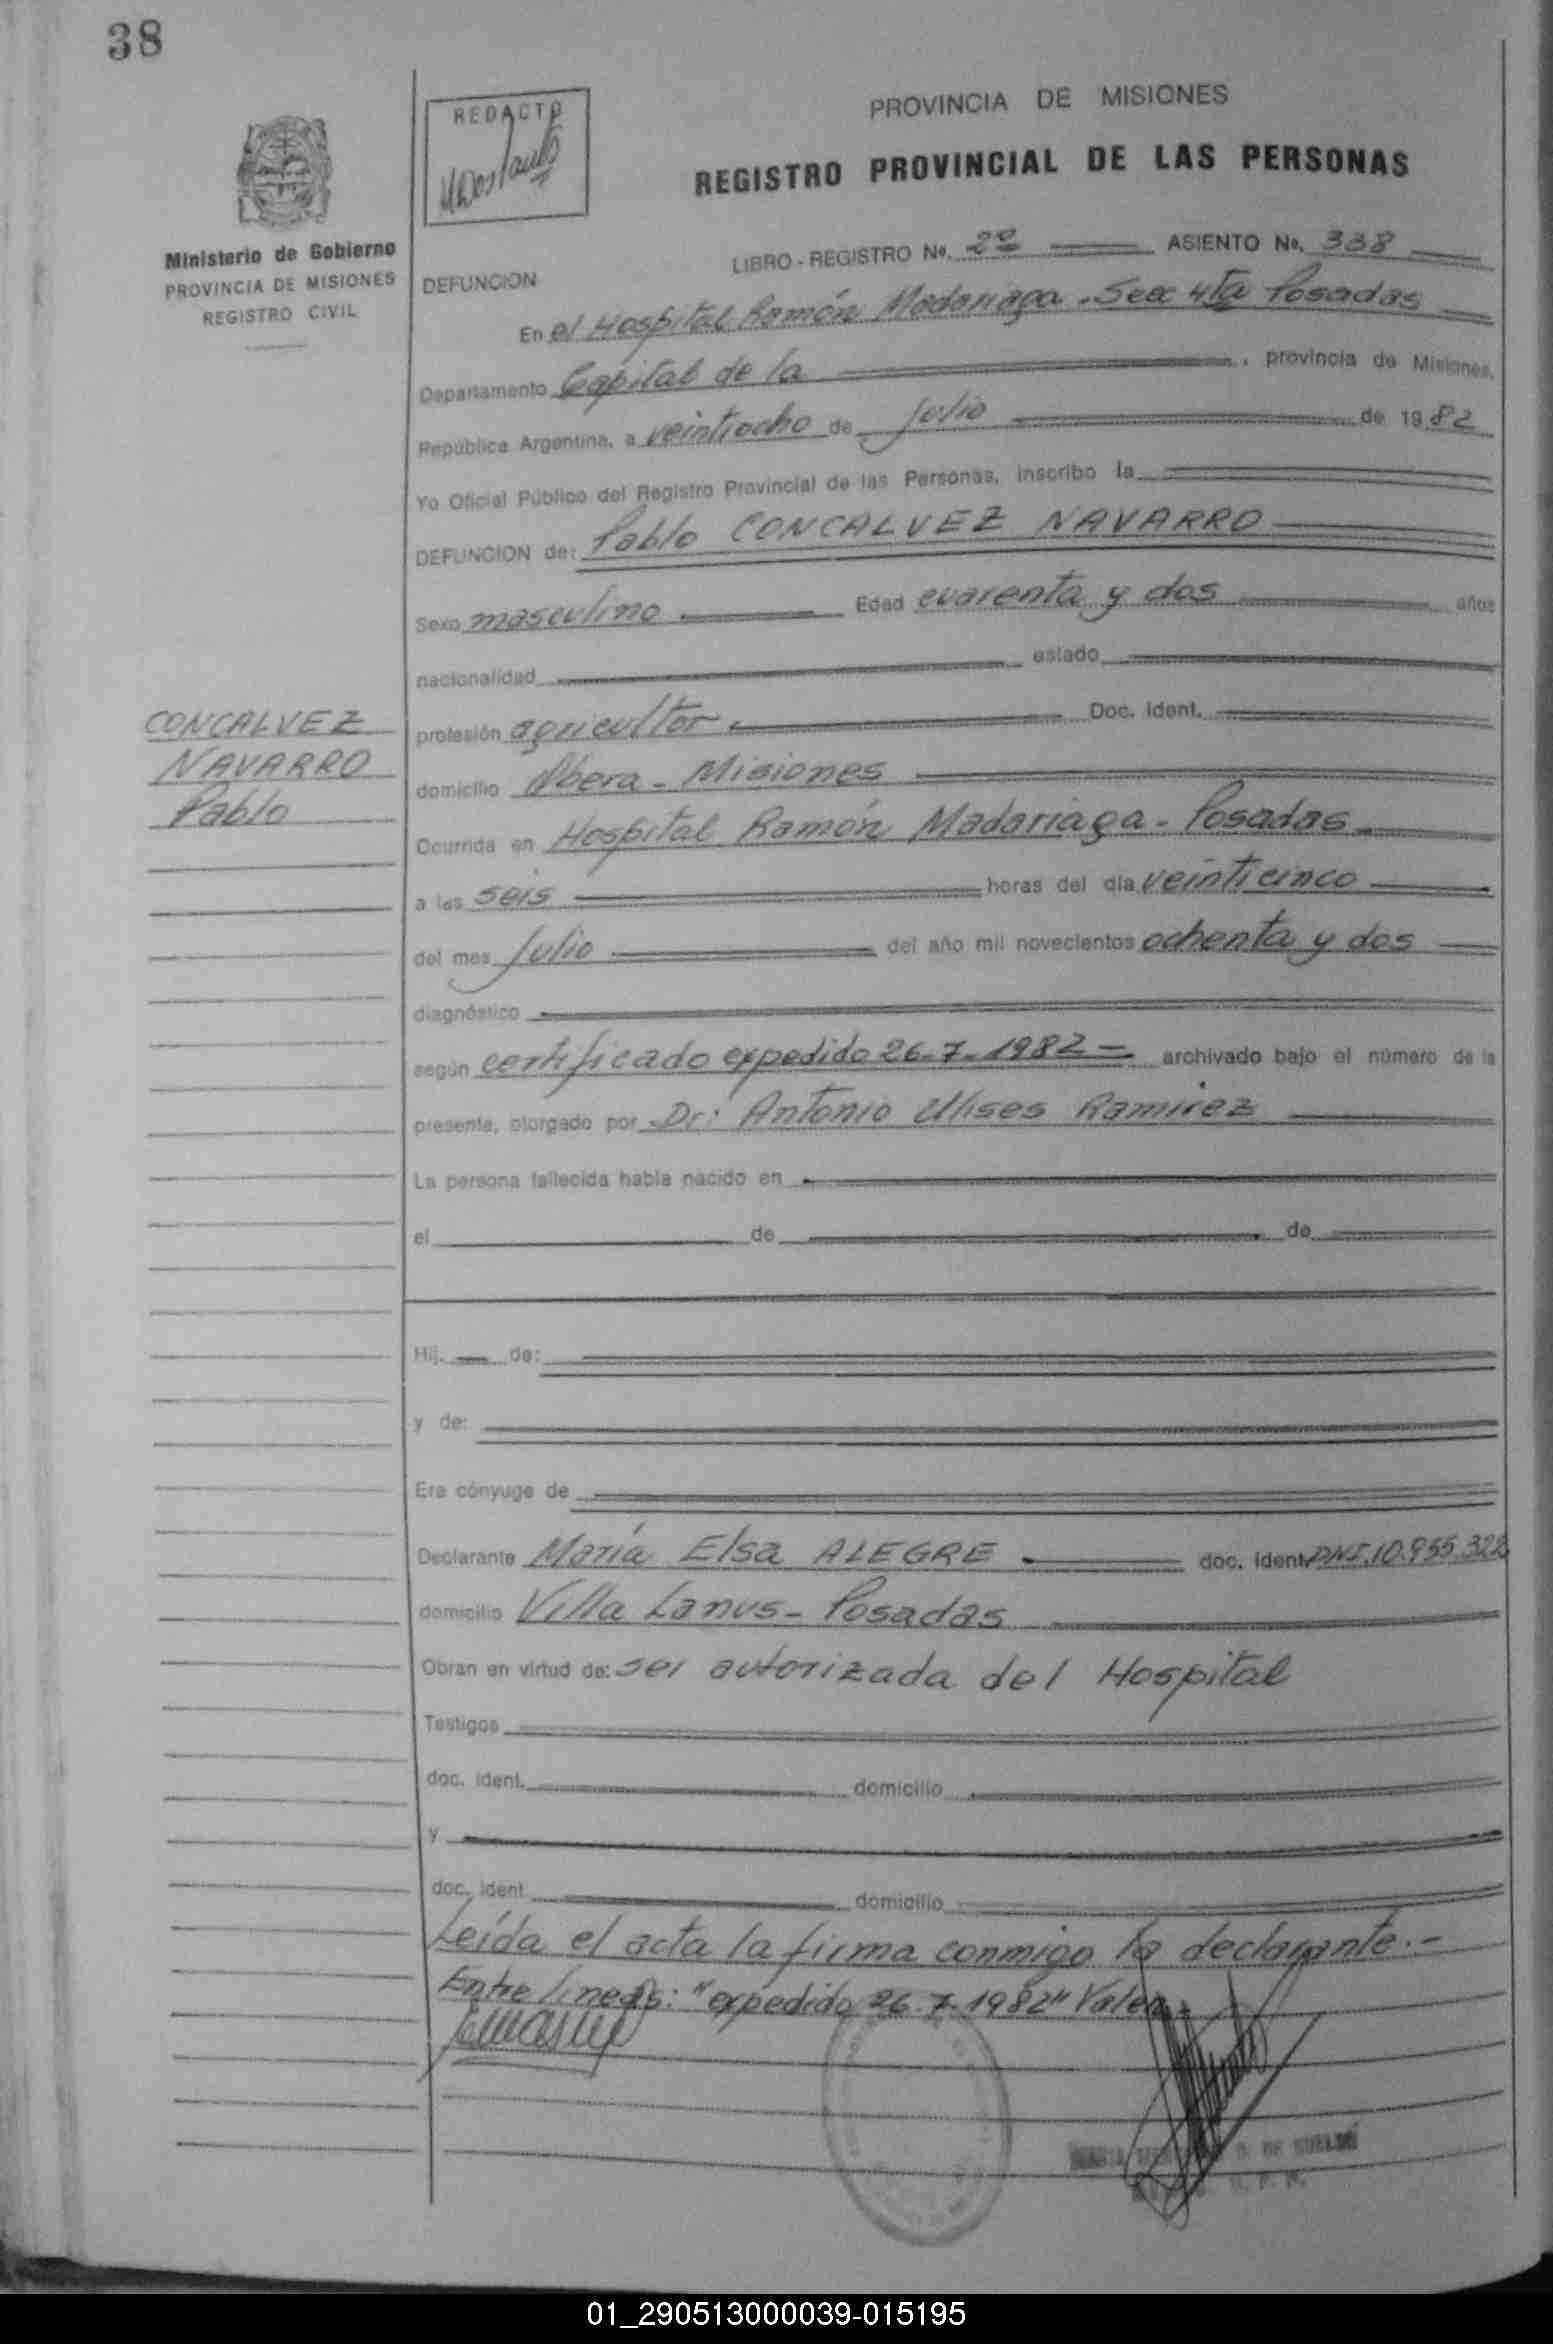 38
REDACTO
PROVINCIA DE MISIONES
REGISTRO PROVINCIAL DE LAS PERSONAS
Ministerio de Gobierno
PROVINCIA DE MISIONES
REGISTRO CIVIL
LIBRO - REGISTRO No. 2º ASIENTO No. 338
DEFUNCION
En el Hospital Ramón Madariaga - Secc 4ta Posadas
Departamento Capital de la , provincia de Misiones,
República Argentina, a veintiocho de Julio de 1982
Yo Oficial Público del Registro Provincial de las Personas, inscribo la
DEFUNCION de: Pablo CONCALVEZ NAVARRO
Sexo masculino Edad cuarenta y dos años
nacionalidad estado
CONCALVEZ
NAVARRO
Pablo
profesión agricultor Doc. Ident.
domicilio Obera - Misiones
Ocurrida en Hospital Ramón Madariaga - Posadas
a las seis horas del día veinticinco
del mes Julio del año mil novecientos ochenta y dos
diagnóstico
según certificado expedido 26-7-1982 - archivado bajo el número de la
presente, otorgado por Dr: Antonio Ulises Ramirez
La persona fallecida había nacido en
el de de
Hij. de:
y de:
Era cónyuge de
Declarante María Elsa ALEGRE doc. ident. DNI.10.955.322
domicilio Villa Lanus - Posadas
Obran en virtud de: ser autorizada del Hospital
Testigos
doc. ident. domicilio
y
doc. ident domicilio
Leída el acta la firma conmigo la declarante.-
Entre lineas: "expedido 26.7.1982" Valen.-
01_290513000039-015195